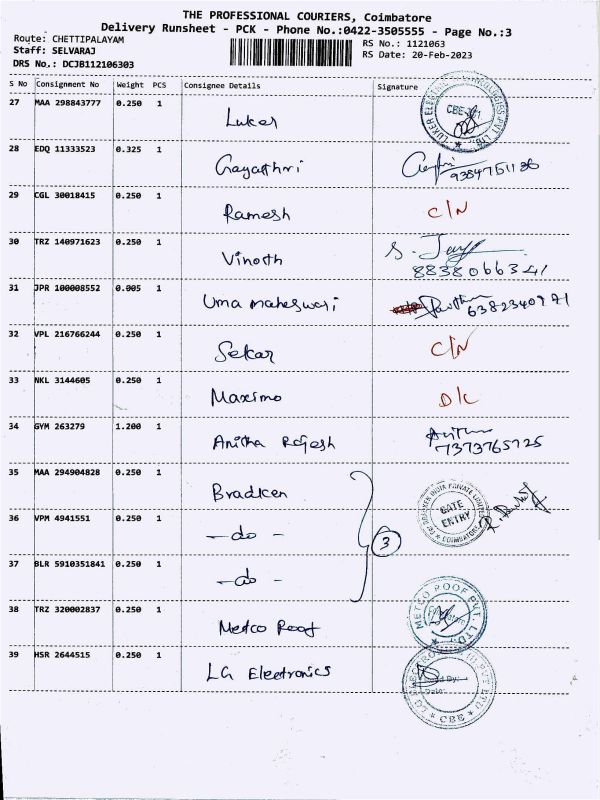 THE PROFESSIONAL COURIERS, Coimbatore
Delivery Runsheet - PCK - Phone No.:0422-3505555 - Page No.:3
Route: CHETTIPALAYAM
Staff: SELVARAJ
DRS No.: DCJB112106303
RS No.: 1121063
RS Date: 20-Feb-2023
S No Consignment No Weight PCS Consignee Details Signature
27 MAA 298843777 0.250 1 Luker
CBE-
28 EDQ 11333523 0.325 1 Gayathri
9384751186
29 CGL 30018415 0.250 1 Ramesh C/N
30 TRZ 140971623 0.250 1 Vinoth
8838066341
31 JPR 100008552 0.005 1 Uma maheswari
6382340971
32 VPL 216766244 0.250 1 Sekar C/N
33 NKL 3144605 0.250 1 Maximo D/L
34 GYM 263279 1.200 1 Anitha Rajesh
7373765725
35 MAA 294904828 0.250 1 Bradken
GATE ENTRY
36 VPM 4941551 0.250 1 -do- 3
37 BLR 5910351841 0.250 1 -do-
38 TRZ 320002837 0.250 1 Metco Roof METCO ROOF PVT. LTD.
39 HSR 2644515 0.250 1 LG Electronics
CBE